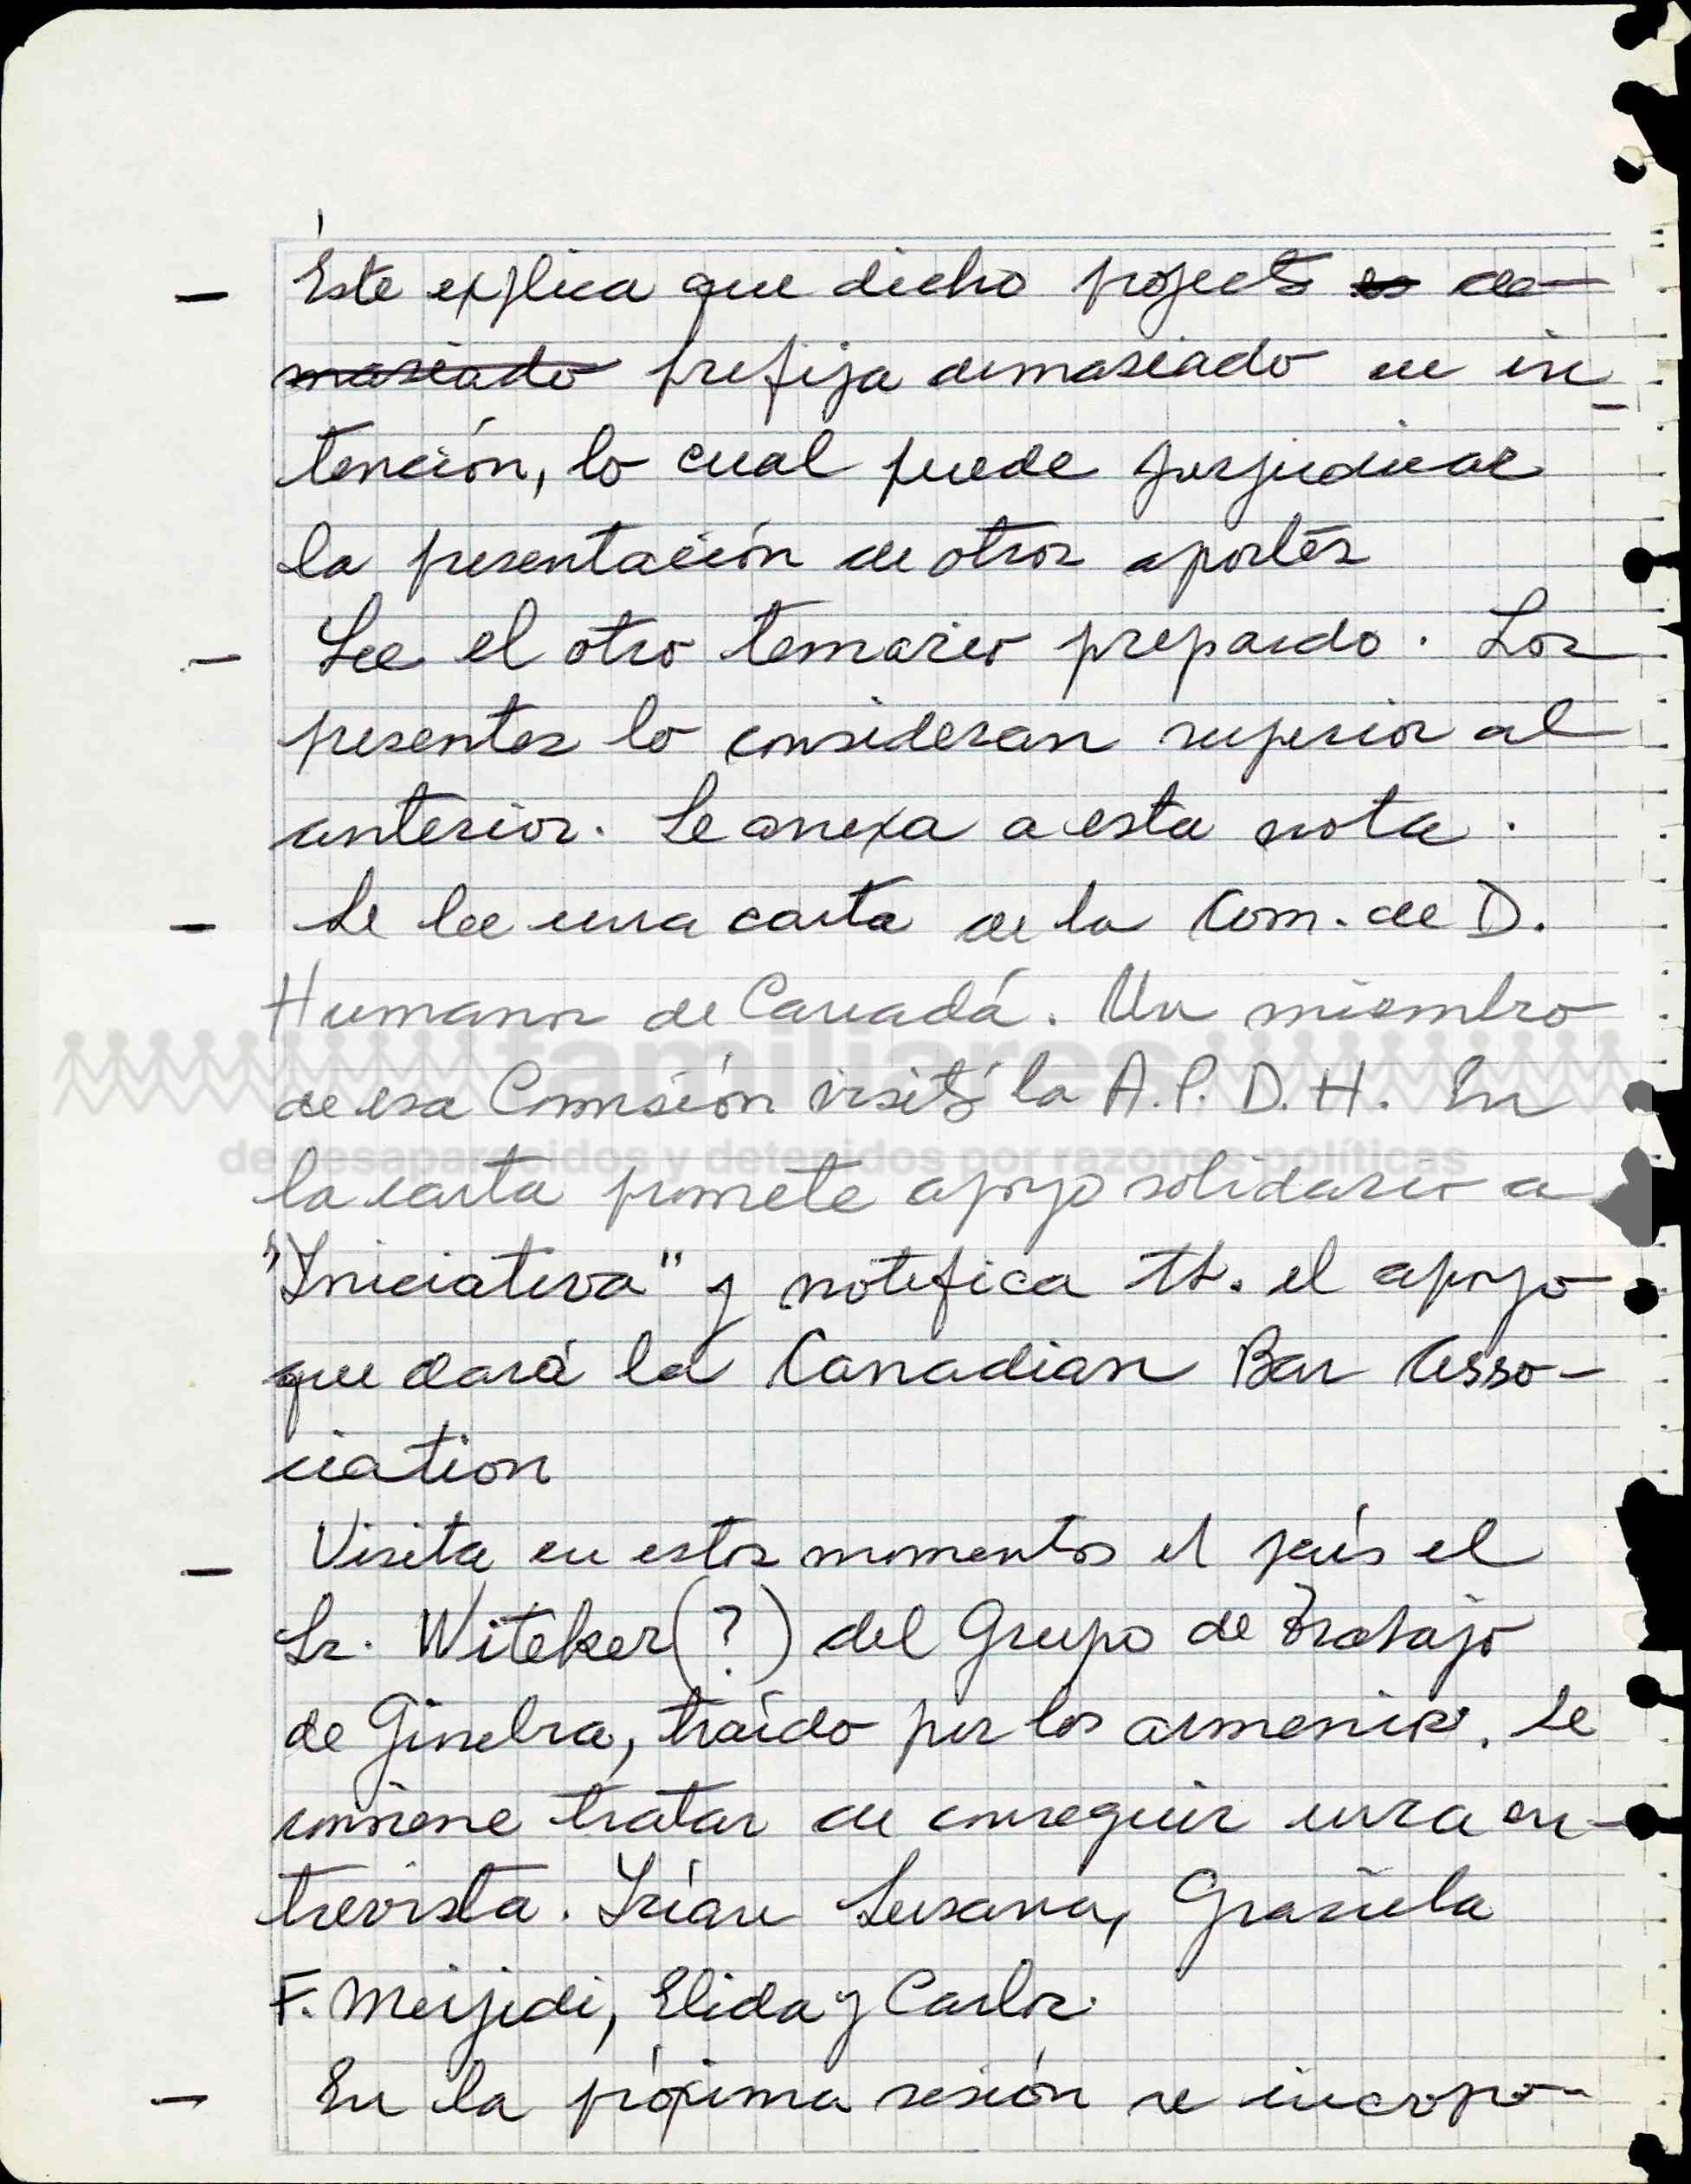 – Éste explica que dicho projecto es de-
masiado prefija demasiado su in-
tención, lo cual puede perjudicar
la presentación de otros aportes
– Lee el otro temario preparado. Los
presentes lo consideran superior al
anterior. Se anexa a esta nota.
– Se lee una carta de la Com. de D.
Humanos de Canadá. Un miembro
familiares
de esa Comisión visitó la A.P.D.H. En
de desaparecidos y detenidos por razones políticas
la carta promete apoyo solidario a
"Iniciativa" y notifica tb. el apoyo
que dará la Canadian Bar Asso-
ciation
– Visita en estos momentos el país el
Sr. Witeker (?) del Grupo de Trabajo
de Ginebra, traído por los armenios. Se
conviene tratar de conseguir una en-
trevista. Irían Susana, Graciela
F. Meijide, Elida y Carlos.
– En la próxima sesión se incorpo-